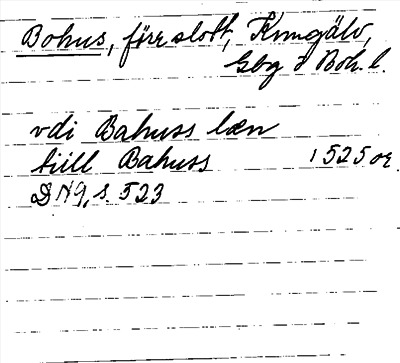 Bohus, före slott, Kungälv,
Gbg o Boh. l.
vdi Bahuss læn
tiill Bahuss 1525 or
DN 9, s. 523